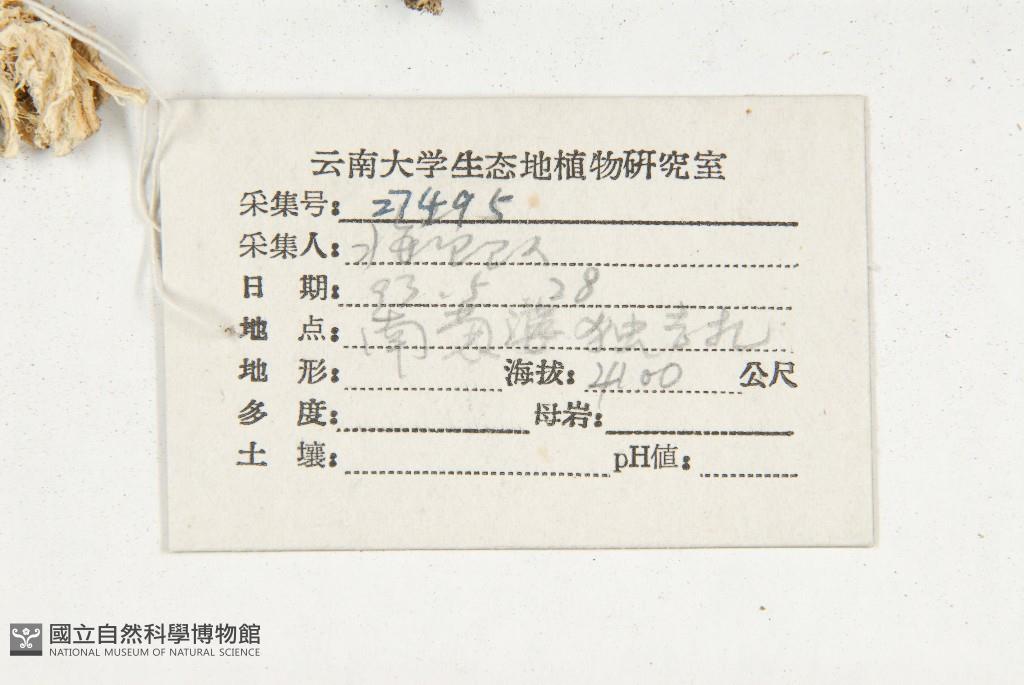 云南大学生态地植物研究室
采集号: 27495
采集人:
日 期: 93.5 28
地 点: 南
地 形: 海拔: 4100 公尺
多 度: 母岩:
土 壤: pH値:
國立自然科學博物館
NATIONAL MUSEUM OF NATURAL SCIENCE